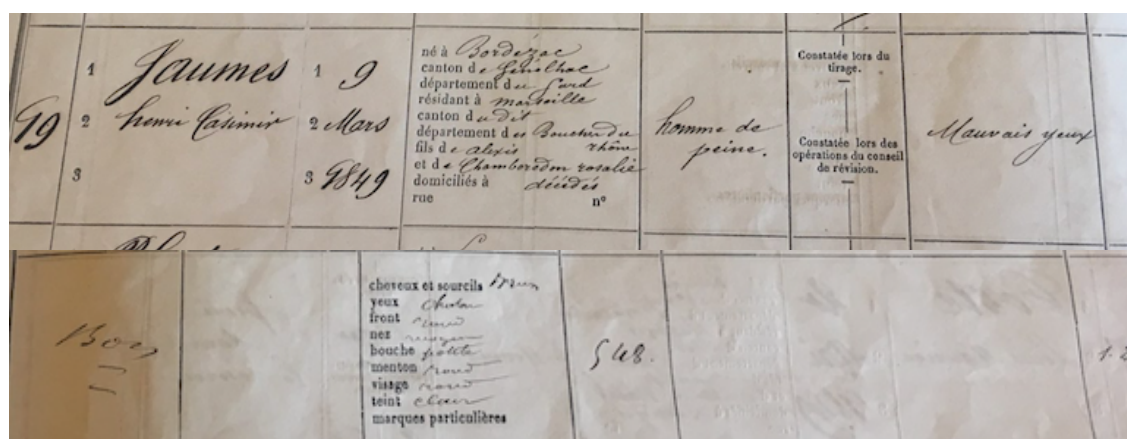 99
1 Jaumes
2 henri Casimir
3
1 9
2 Mars
3 1849
né à Bordezac
canton de Génolhac
département du Gard
résidant à marseille
canton du dit
département des Bouches du
rhône
fils de alexis
et de Chamboredon rosalie
domiciliés à décédés
rue n°
homme de
peine.
Constatée lors du
tirage.
Constatée lors des
opérations du conseil
de révision.
Mauvais yeux
Bon
cheveux et sourcils brun
yeux
front rond
nez moyen
bouche petite
menton rond
visage rond
teint clair
marques particulières
548.